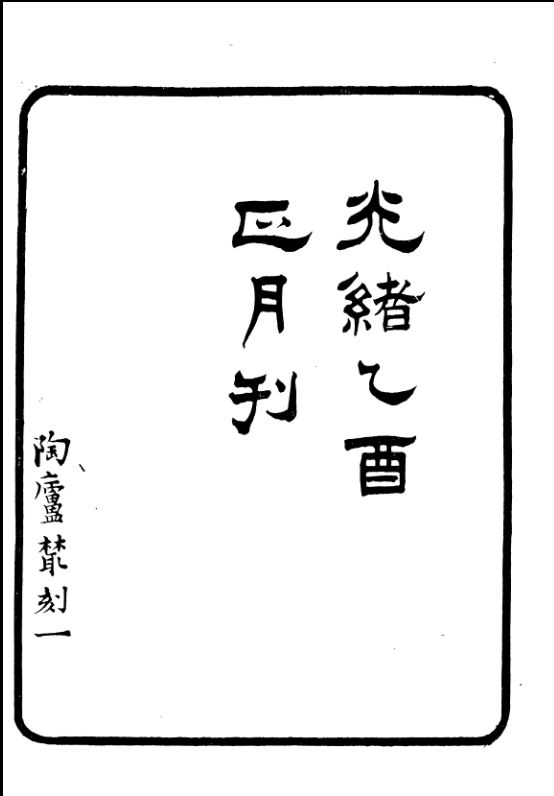 光緒乙酉
正月刊
陶廬藂刻一